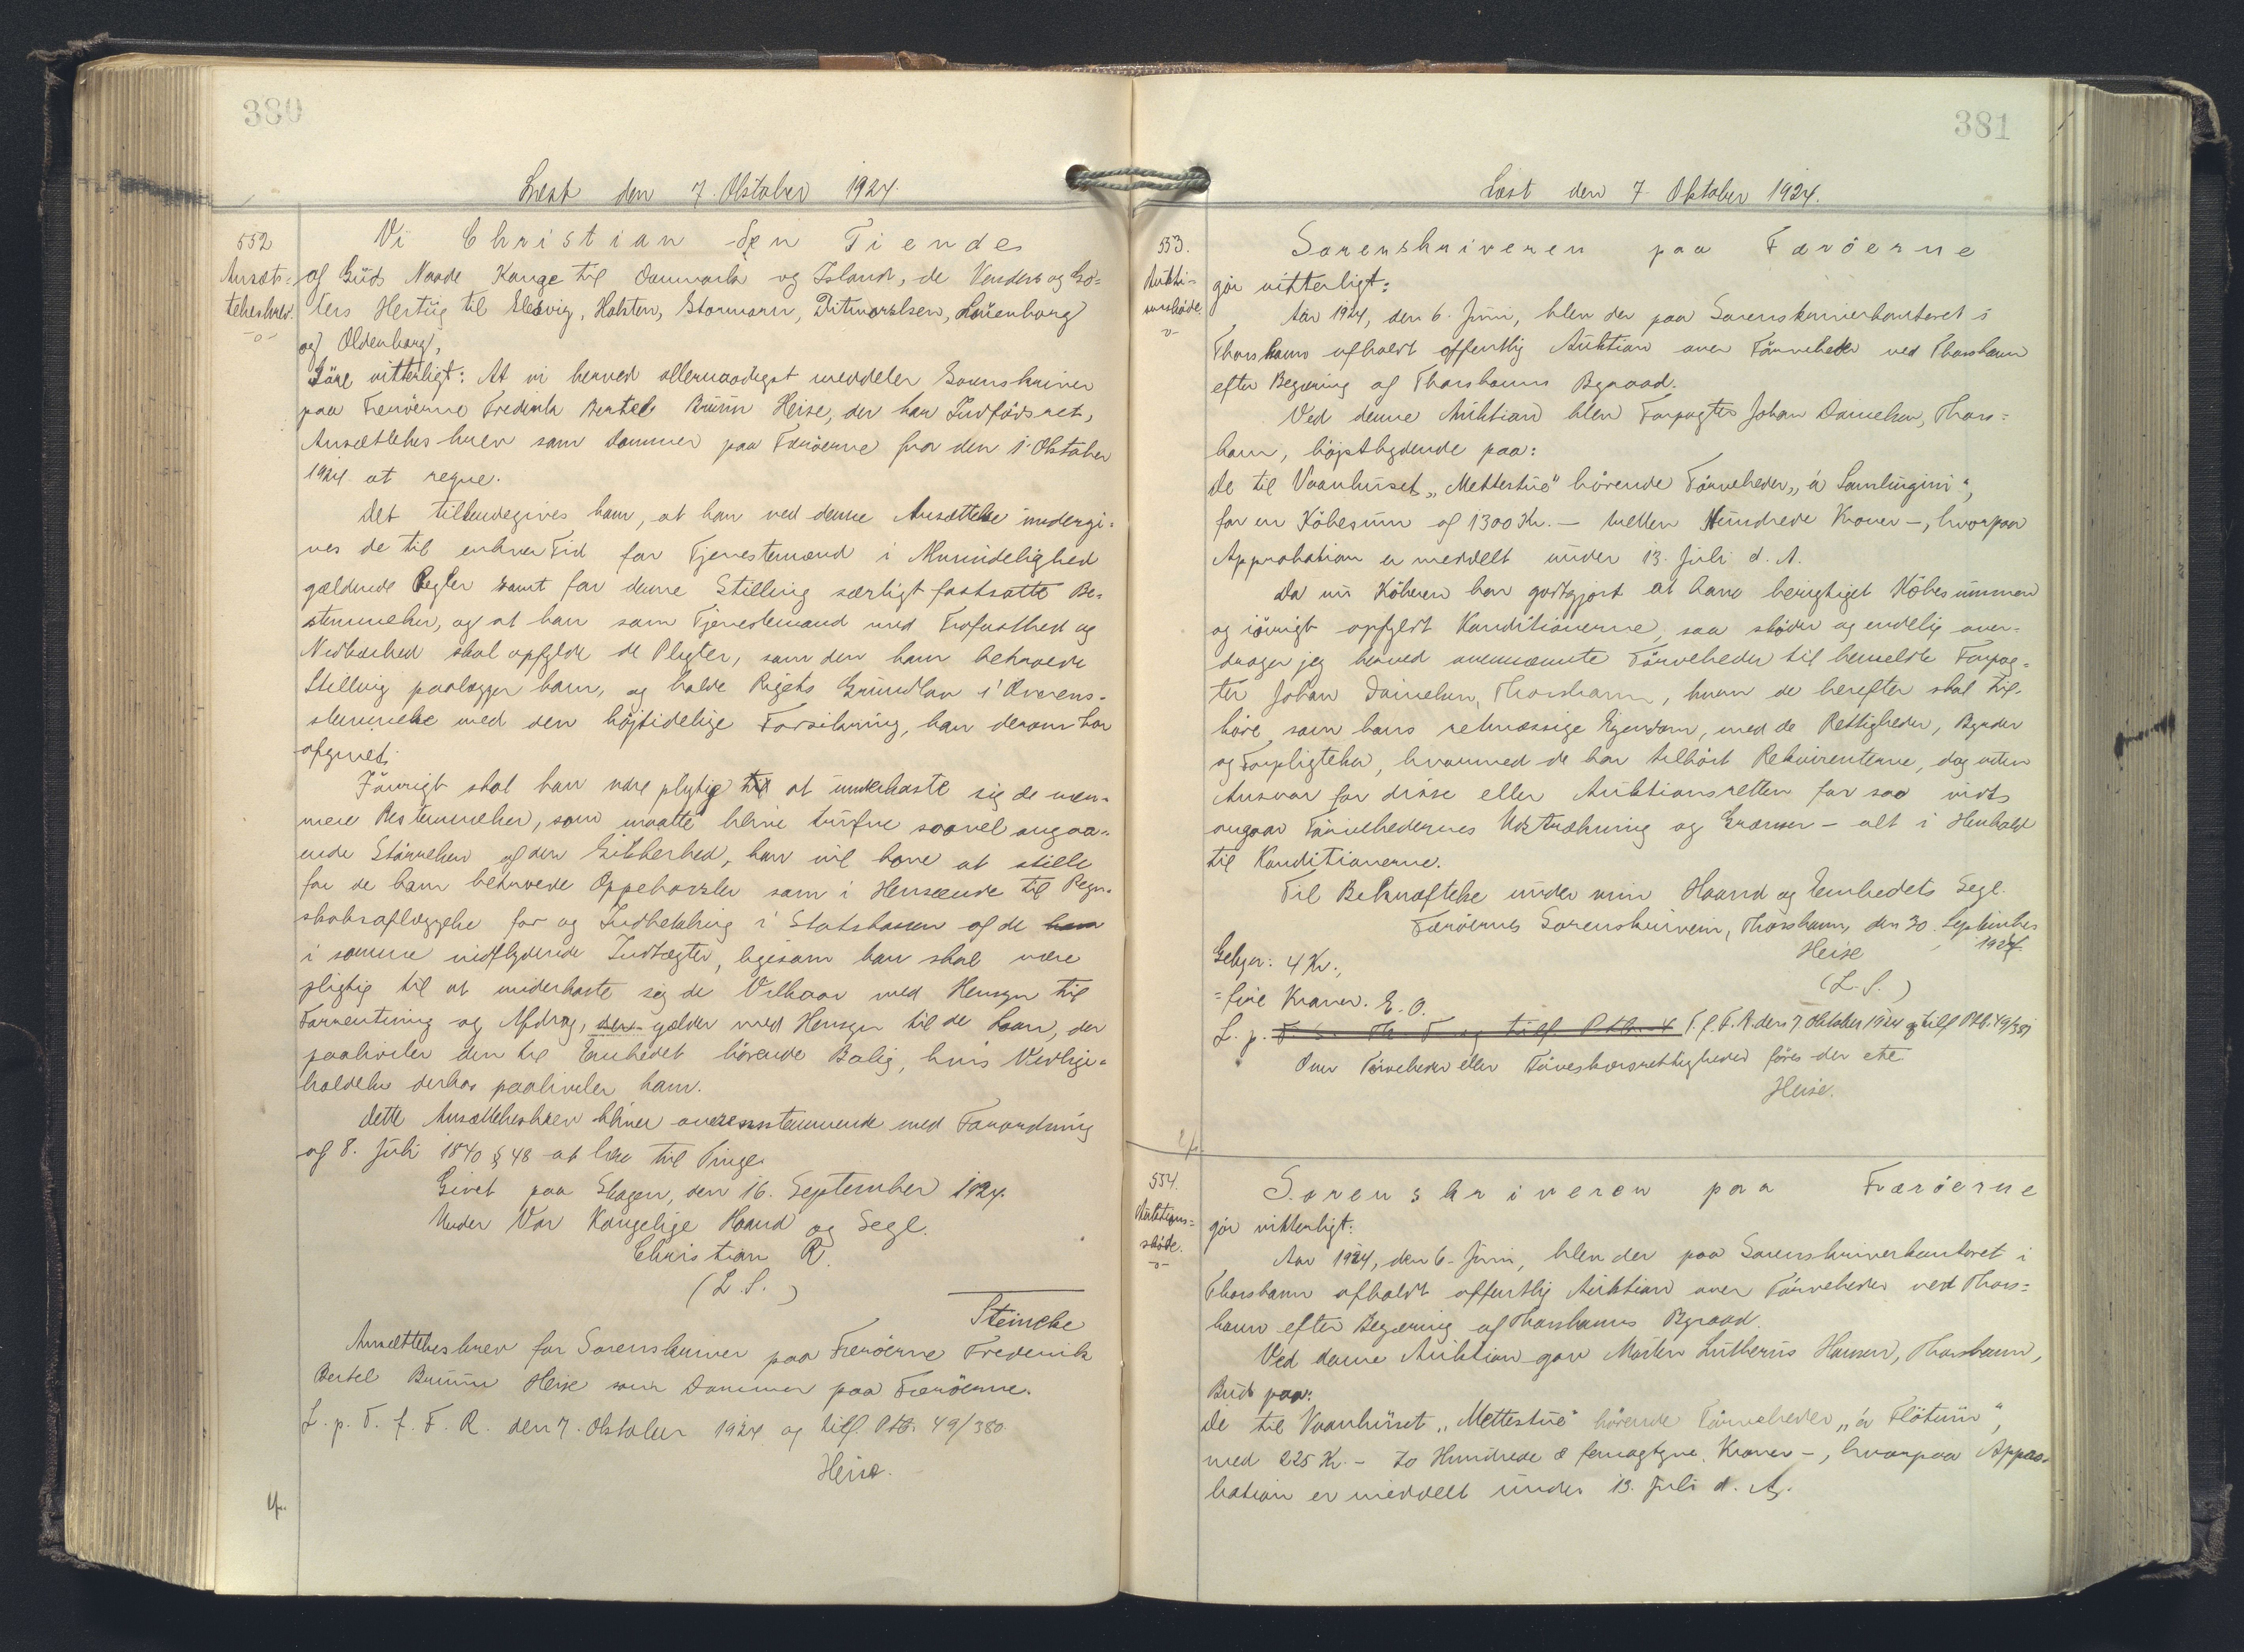 380
Læst den 7. Oktober 1924.
552
Ansæt-
telsesbrev.
Vi Christian den Tiende
af Guds Naade Konge til Danmark og Island, de Venders og Go=
ters Hertug til Slesvig, Holsten, Stormarn, Ditmarsken, Lauenborg
og Oldenborg,
Göre vitterligt: At vi herved allernaadigst meddeler Sorenskriver
paa Færöerne Frederik Bertel Bruun Heise, der har Indfödsret,
Ansættelsesbrev som Dommer paa Færöerne fra den 1. Oktober
1924 at regne.
Det tilkendegives ham, at han ved denne Ansættelse undergi=
ves de til enhver Tid for Tjenestemænd i Almindelighed
gældende Regler samt for denne Stilling særligt fastsatte Be=
stemmelser, og at han som Tjenestemand med Trofasthed og
Nidkærhed skal opfylde de Pligter, som den ham betroede
Stilling paalægger ham, og holde Rigets Grundlov i Overens=
stemmelse med den höjtidelige Forsikring, han derom har
afgivet.
Iövrigt skal han være pligtig til at underkaste sig de nær=
mere Bestemmelser, som maatte blive trufne saavel angaa=
ende Störrelsen af den Sikkerhed, han vil have at stille
for de ham betroede Oppebörsler som i Henseende til Regn=
skabsaflæggelse for og Indbetaling i Statskassen af de ham
i samme indflydende Indtægter, ligesom han skal være
pligtig til at underkaste sig de Vilkaar med Hensyn til
Forrentning og Afdrag, der gælder med Hensyn til de Laan, der
paahviler den til Embedet hörende Bolig, hvis Vedlige=
holdelse derhos paahviler ham.
Dette Ansættelsesbrev bliver overensstemmende med Forordning
af 8. Juli 1840 § 48 at læse til Tinge.
Givet paa Skagen, den 16. September 1924.
Under Vor Kongelige Haand og Segl.
Christian R.
(L. S.)
Steincke
Ansættelsesbrev for Sorenskriver paa Færöerne Frederik
Bertel Bruun Heise som Dommer paa Færöerne.
L. p. T. f. F. R. den 7. Oktober 1924 og tilf. Ptb. 49/380.
Heise.
381
Læst den 7. Oktober 1924.
553.
Aukti-
onsskøde.
Sorenskriveren paa Færöerne
gör vitterligt:
Aar 1924, den 6. Juni, blev der paa Sorenskriverkontoret i
Thorshavn afholdt offentlig Auktion over Törveheder ved Thorshavn
efter Begæring af Thorshavns Byraad.
Ved denne Auktion blev Forpagter Johan Danielsen, Thors=
havn, höjstbydende paa:
De til Vaanhuset „Mettestue" hörende Törveheder „á Sandingini",
for en Köbesum af 1300 Kr. – tretten Hundrede Kroner –, hvorpaa
Approbation er meddelt under 13. Juli d. A.
Da nu Köberen har godtgjort at have berigtiget Köbesummen
og iövrigt opfyldt Konditionerne, saa sköder og endelig over=
drager jeg herved ovennævnte Törveheder til bemeldte Forpag=
ter Johan Danielsen, Thorshavn, hvem de herefter skal til=
höre som hans retmæssige Ejendom, med de Rettigheder, Byrder
og Forpligtelser, hvormed de har tilhört Rekvirenterne, dog uden
Ansvar for disse eller Auktionsretten for saa vidt
angaar Törvehedernes Udstrækning og Grænser – alt i Henhold
til Konditionerne.
Til Bekræftelse under min Haand og Embedets Segl.
Færöernes Sorenskriveri, Thorshavn, den 30. September
1924.
Heise
(L. S.)
Gebyr: 4 Kr.,
= fire Kroner. E. O.
L. p. T. f. F. R. den 7 Oktober 1924 og tilf. Ptb. 49/381
Over Törveheder eller Törveskærsrettigheder föres der ete
Heise.
554.
Auktions=
sköde.
Sorenskriveren paa Færöerne
gör vitterligt:
Aar 1924, den 6. Juni, blev der paa Sorenskriverkontoret i
Thorshavn afholdt offentlig Auktion over Törveheder ved Thors=
havn efter Begæring af Thorshavns Byraad.
Ved denne Auktion gav Morten Lutherus Hansen, Thorshavn,
Bud paa:
De til Vaanhuset „Mettestue" hörende Törveheder „á Flötum",
med 225 Kr. – to Hundrede & femogtyve Kroner –, hvorpaa Appro=
bation er meddelt under 13. Juli d. A.